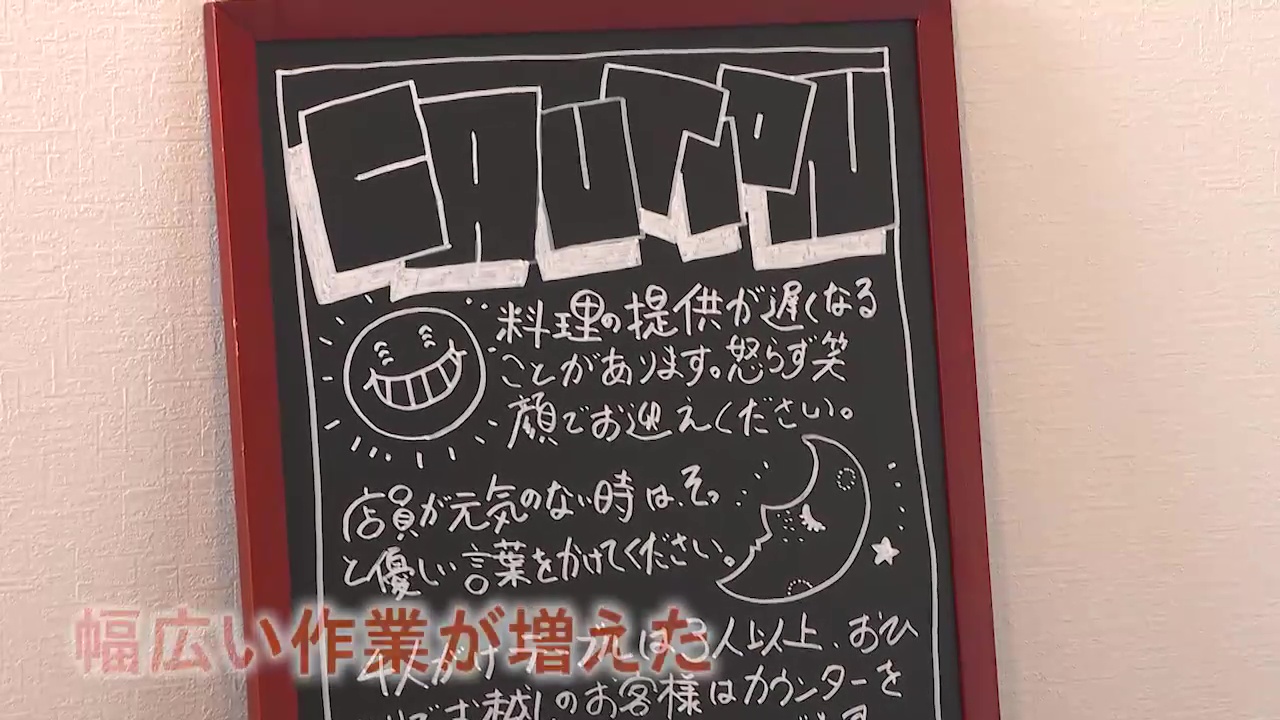 CAUTION
料理の提供が遅くなる
ことがあります。怒らず笑
顔でお迎えください。
店員が元気のない時は、そっ
と優しい言葉をかけてください。
幅広い作業が増えた
4人がけテーブルは3人以上、おひ
お越しのお客様はカウンターを